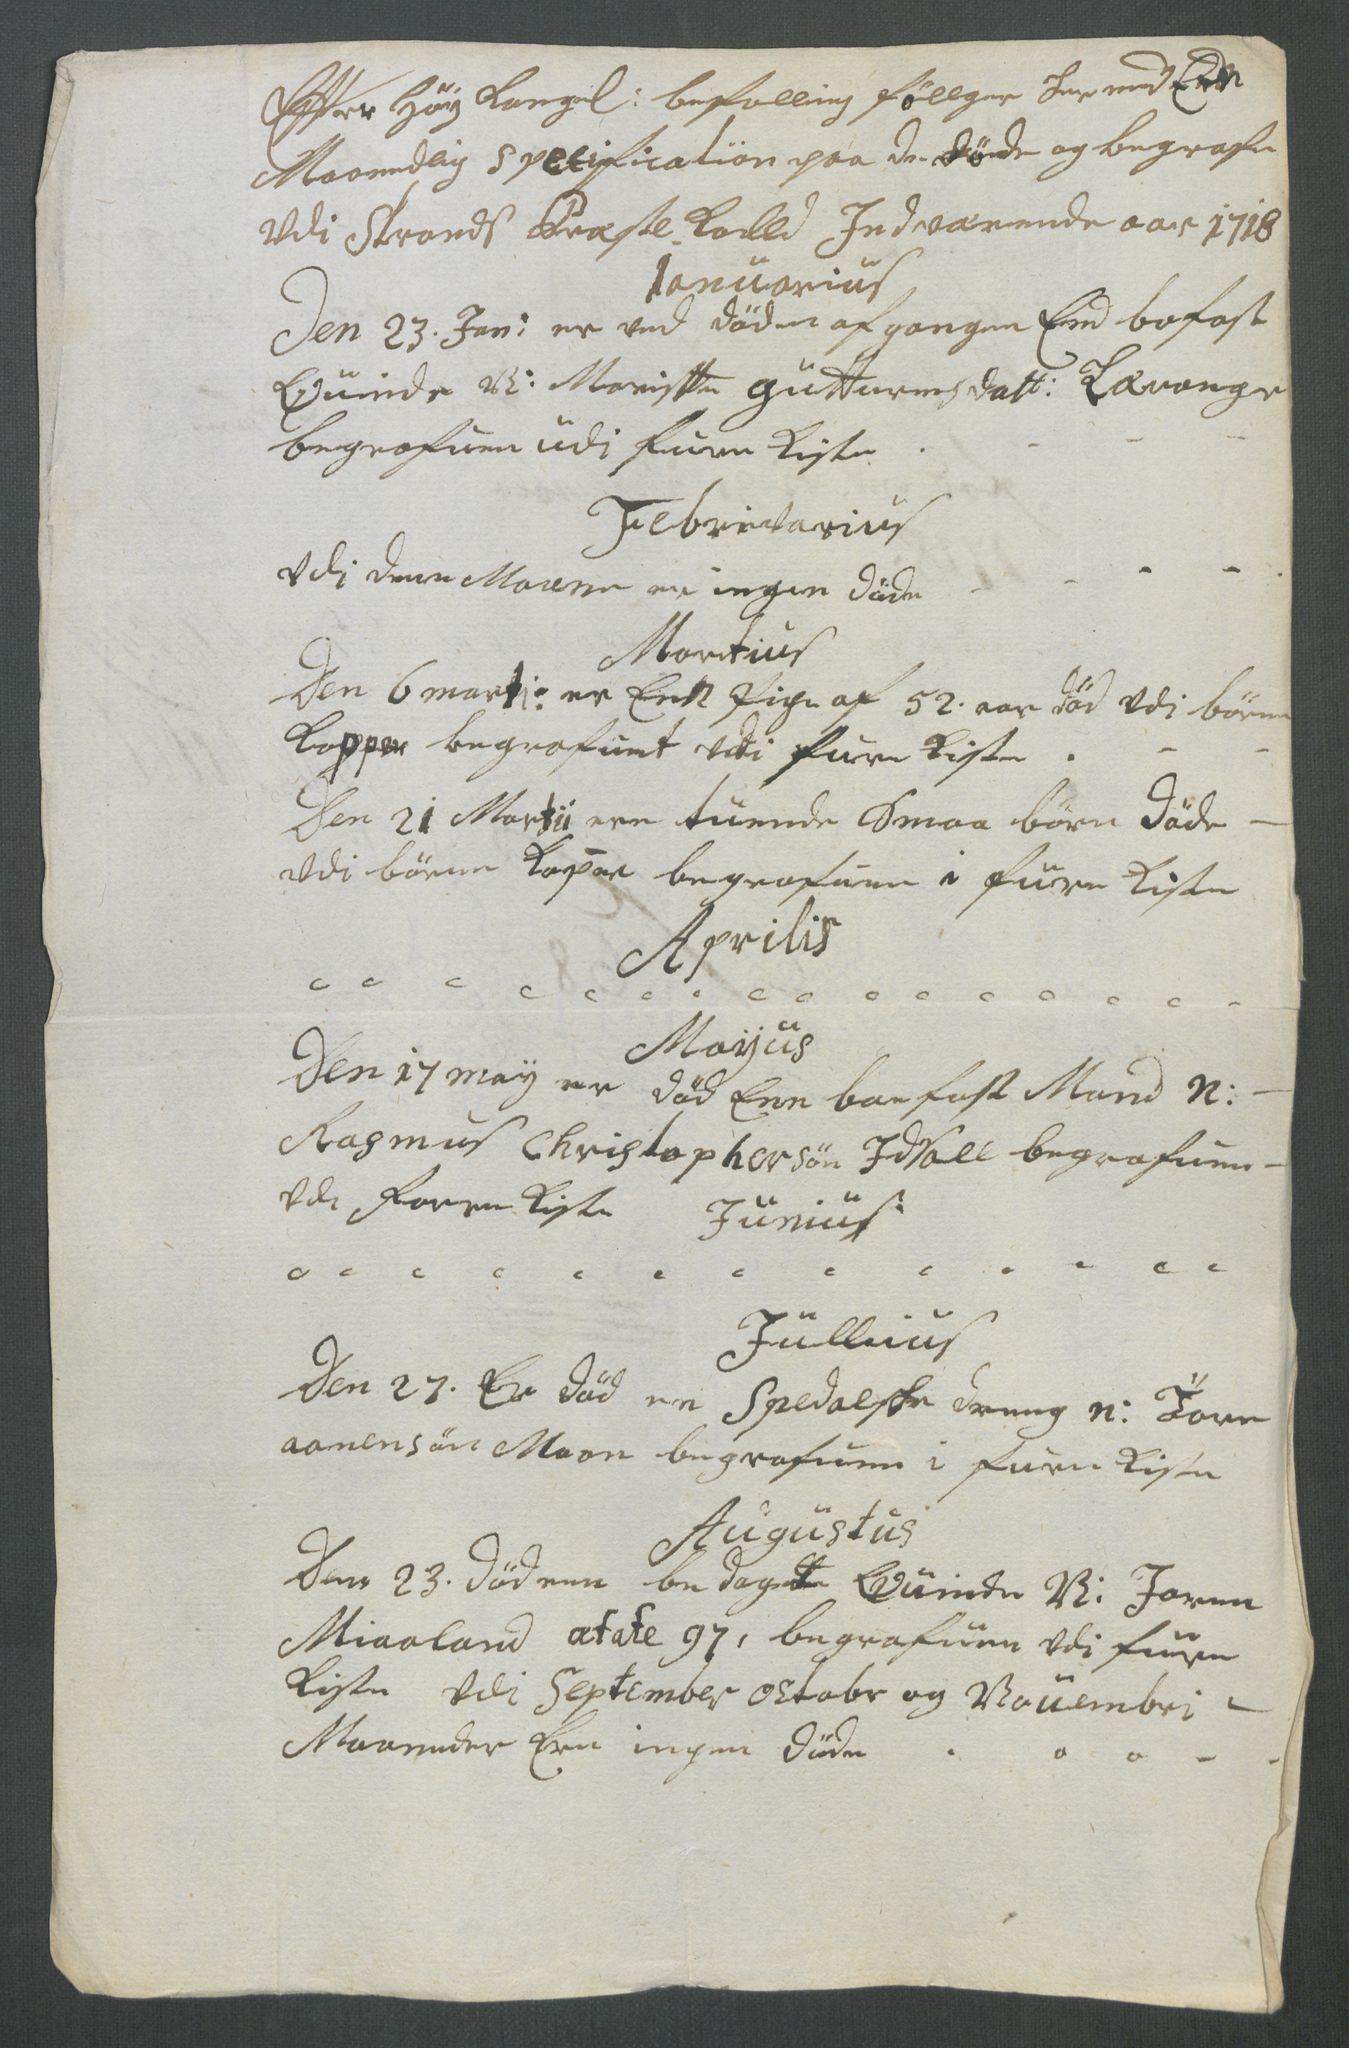 Effter Höy Kongel: befalling föllger her med Een
Maanedlig Specification paa de döde og begrafne
Udi Strands Præste Kald Indværende aar 1718
Januarius
Den 23. Jan: er ved döden afgangen End bofast
Quinde N: Marithe Gutturmsdatt:
begrafuen udi furu Kiste
Februarius
Udi denne Maane er ingen döde
Martius
Den 6 marti: er Een Pige af 52. aar död Udi börne
Kopper begrafuet Udi furu Kiste
Den 21 Martii ere tuende Smaa börn döde
Udi börne Koper begrafuen i furu Kiste
Aprilis
Mayus
Den 17 may er död Een boefast Mand N:
Rasmus Christophersön Idsöll begrafuen
Udi furu Kiste Junius
Jullius
Den 27. Er död en Spedalske dreng N: Tore
aanensön Maan begrafuen i furu Kiste
Augustus
Den 23. död een bedaget Quinde N: Joren
Miaaland ætate 97, begrafuen Udi furu
Kiste Udi September Octobr og Nouembri
Maaneder Ere ingen döde